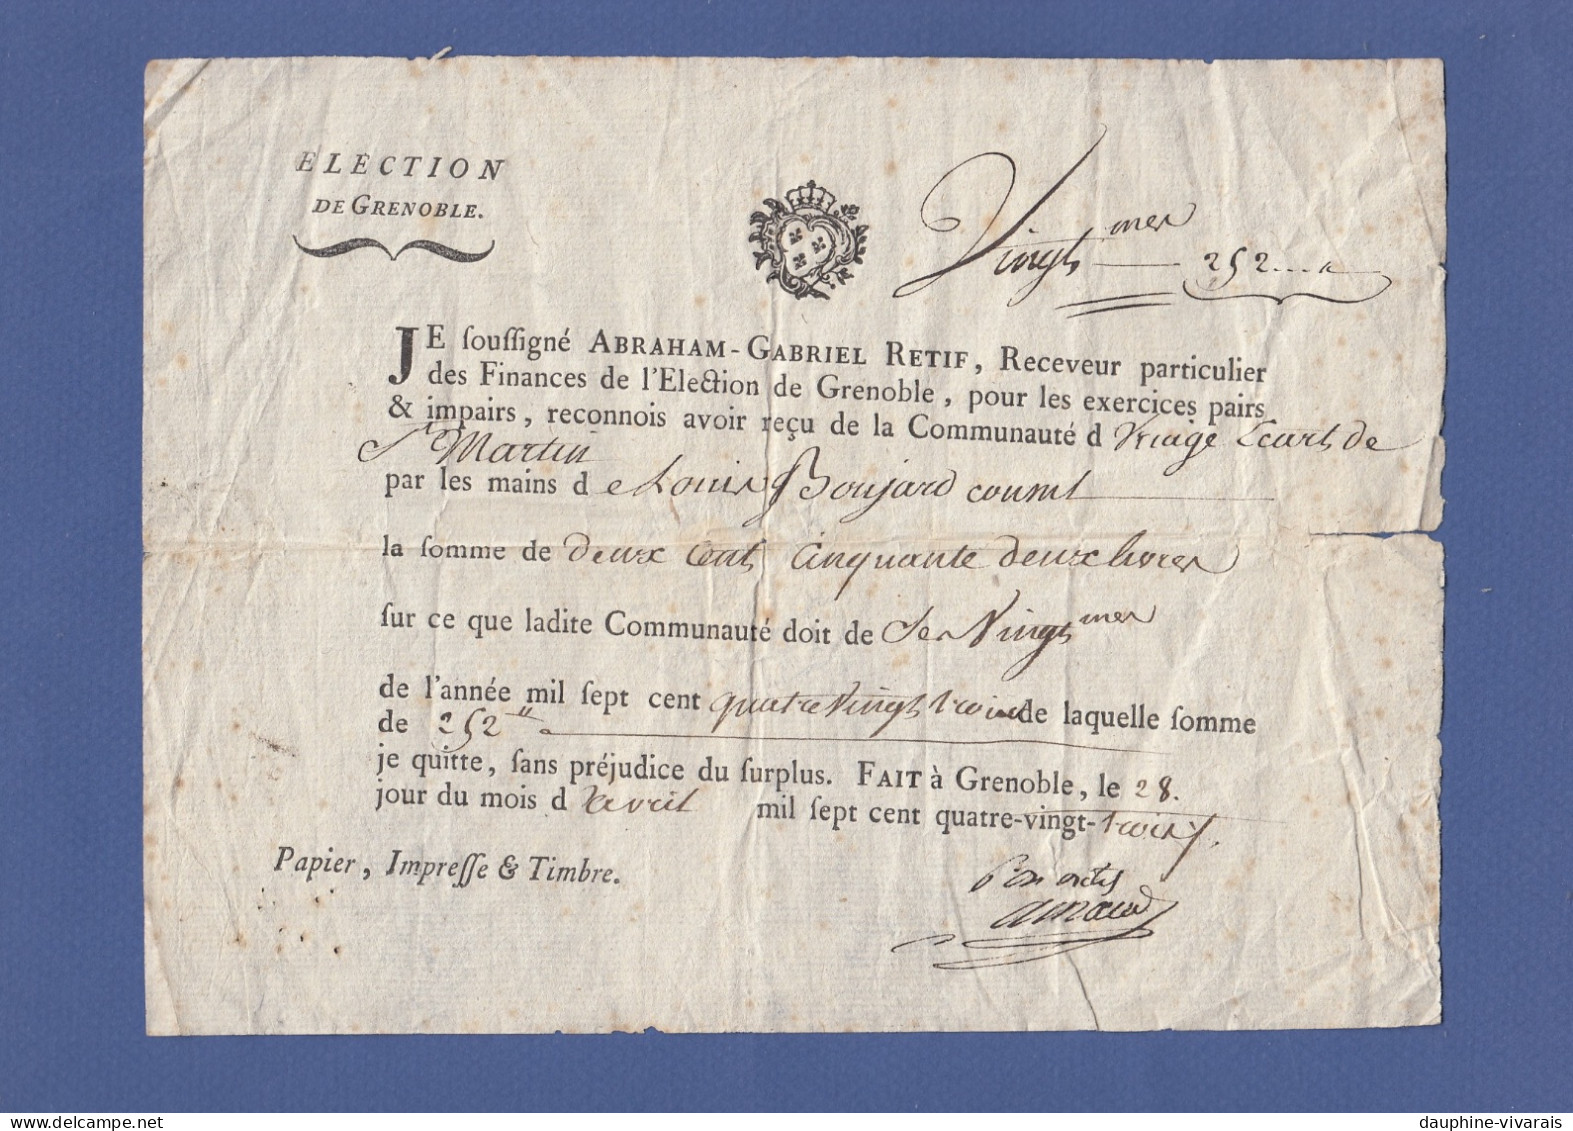 ELECTION
DE GRENOBLE.
Vingt mes 252
JE souſſigné ABRAHAM-GABRIEL RETIF, Receveur particulier
des Finances de l'Election de Grenoble, pour les exercices pairs
& impairs, reconnois avoir reçu de la Communauté d Uriage Ecart de
St Martin
par les mains d e Louis Boujard consul
la ſomme de deux cent cinquante deux livres
ſur ce que ladite Communauté doit de ses Vingt mes
de l'année mil ſept cent quatre Vingt trois de laquelle ſomme
de 252 ll
je quitte, ſans préjudice du ſurplus. FAIT à Grenoble, le 28.
jour du mois d avril mil ſept cent quatre-vingt-trois.
Papier, Impreſſe & Timbre.
arnaud
dauphine-vivarais